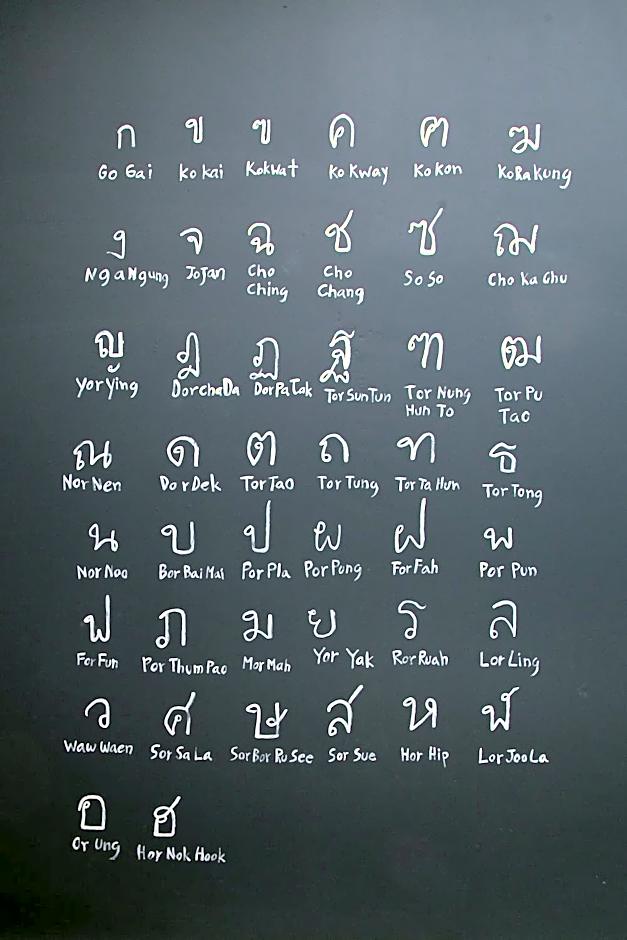 ก ข ฃ ค ฅ ฆ
Go Gai Ko kai Kokwat Ko Kway Ko Kon KoRakung
ง จ ฉ ช ซ ฌ
NgaNgung JoJan Cho Ching Cho Chang So So Cho Ka Chu
ญ ฎ ฏ ฐ ฑ ฒ
Yor Ying DorchaDa DorPaTak TorSunTun Tor Nung Hun To Tor Pu Tao
ณ ด ต ถ ท ธ
Nor Nen Dor Dek Tor Tao Tor Tung Tor Ta Hun Tor Tong
น บ ป ผ ฝ พ
Nor Noo Bor Bai Mai Por Pla Por Pung For Fah Por Pun
ฟ ภ ม ย ร ล
For Fun Por Thum Pao Mor Mah Yor Yak Ror Ruah Lor Ling
ว ศ ษ ส ห ฬ
Waw Waen Sor Sa La Sor Bor Ru See Sor Sue Hor Hip Lor Joo La
อ ฮ
Or Ung Hor Nok Hook